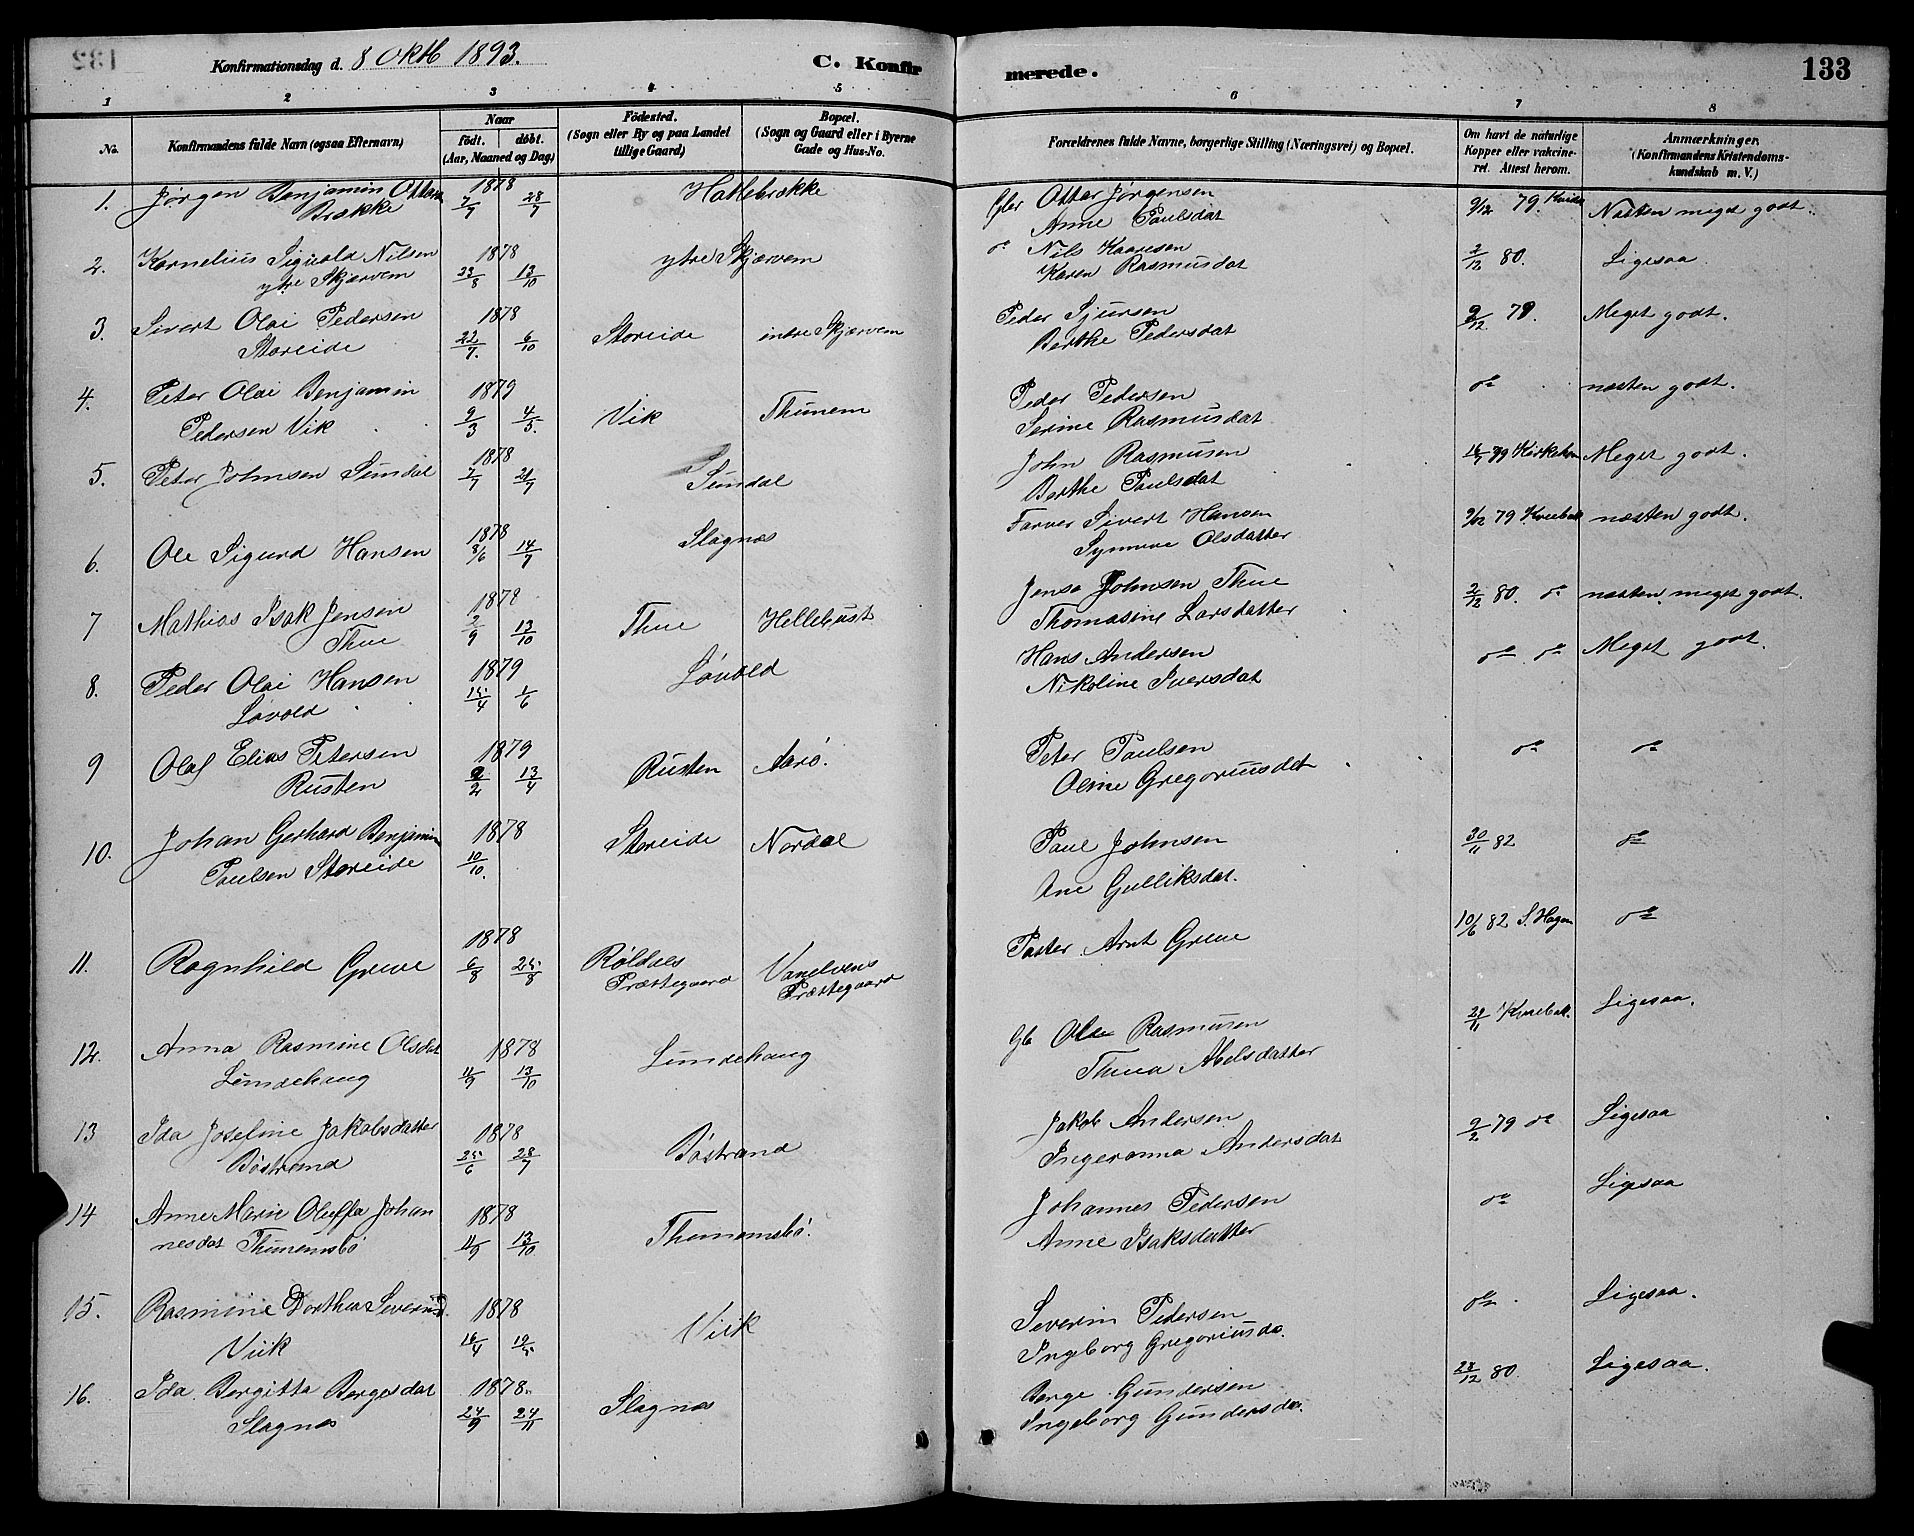 Konfirmationsdag d. 8 Oktb 1893.
C. Konfir
merede.
133
1 2 3 4 5 6 7 8
No.
Konfirmandens fulde Navn (ogsaa Efternavn)
Naar
födt. döbt.
(Aar, Maaned og Dag)
Födested.
(Sogn eller By og paa Landet
tillige Gaard)
Bopæl.
(Sogn og Gaard eller i Byerne
Gade og Hus-No.
Forældrenes fulde Navne, borgerlige Stilling (Næringsvei) og Bopæl.
Om havt de naturlige
Kopper eller vakcine-
ret. Attest herom.
Anmærkninger.
(Konfirmandens Kristendoms-
kundskab m. V.)
1. Jørgen Benjamin Ottersen 1878 Hallebrekke Gbr Otter Jørgensen 9/12 79. Næsten meget godt.
Brekke 7/7 28/7 Anne Paulsdat
2. Kornelius Sigvald Nilsen 1878 ytre Skjærvem do Nils Kaaresen 2/12 80. Ligesaa.
ytre Skjærvem 23/8 13/10 Karen Rasmusdat
3. Sivert Olai Pedersen 1878 Storeide indre Skjærvem Peder Sjursen 9/12 79. Meget godt.
Storeide 22/7. 6/10 Berthe Pedersdat
4. Peter Olai Benjamin 1879 Vik Thunem Peder Pedersen do næsten godt.
Pedersen Vik 9/3 4/5. Serine Rasmusdat
5. Peter Johnsen Sundal 1878 Sundal John Rasmusen 16/7 79 Meget godt.
7/7 21/7 Berthe Paulsdat
6. Ole Sigurd Hansen 1878 Slagnæs Farver Sivert Hansen 9/12 79 Kvebak næsten godt.
8/6 14/7 Synneve Olsdatter
7 Mathias Isak Jensen 1878 Thue Hellebust Jens Johnsen Thue 2/12 80. do næsten meget godt.
Thue 2/9 13/10 Thomasine Larsdatter
8. Peder Olai Hansen 1879 Løvold Hans Andersen do do Meget godt.
Løvold 15/4 1/6 Nikoline Iversdat
9 Olaf Elias Petersen 1879 Rusten Aarø. Peter Paulsen do do
Rusten 2/2 13/4 Oline Gregoriusdat
10. Johan Gerhard Benjamin 1878 Storeide Nordal Paul Johnsen 30/11 82 do
Paulsen Storeide 10/10. Ane Gulliksdat.
11. Ragnhild Greve 1878 Røldals Vanelvens Paster Arnt Greve 10/6 82 S. Hagen do
6/8 25/8 Præstegaard Præstegaard
12. Anna Rasmine Olsdat 1878 Lundehaug Gb Ola Rasmusen 29/11 Kvebak. Ligesaa.
Lundehaug 11/9 13/10 Thrina Abelsdatter
13 Ida Josefine Jakobsdatter 1878 Bøstrand Jakob Andersen 9/2 79 do Ligesaa
Bøstrand 25/6 28/7 Ingeranna Andersdat
14 Anne Marie Oluffa Johan 1878 Thunemsbø. Johannes Pedersen do Ligesaa
nesdat Thunemsbø 11/9 13/10 Anne Isaksdatter
15. Rasmine Dorthea Severinsd. 1878 Viik Severin Pedersen do Ligesaa.
Viik 16/4 19/5 Ingeborg Gregoriusda.
16. Ida Bergitta Bergesdat 1878. Slagnæs Berge Gundersen 28/12 80. Ligesaa.
Slagnæs 24/9 24/11 Ingeborg Gundersda.